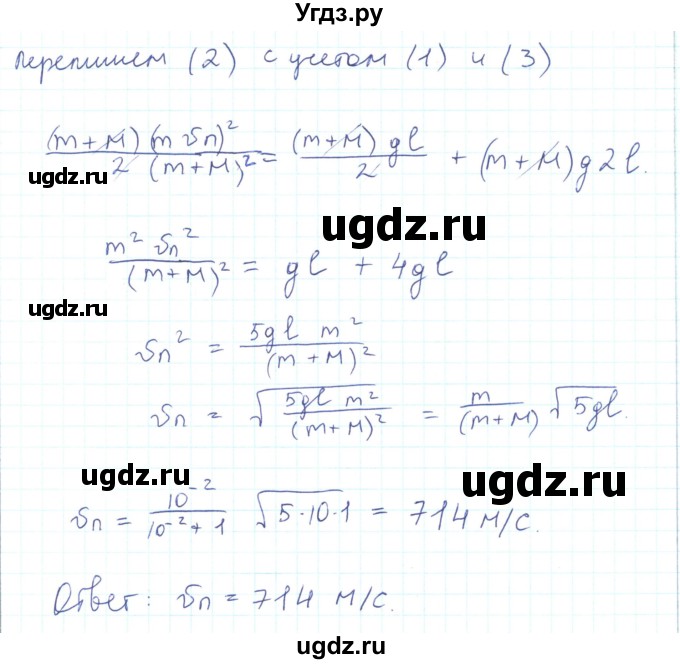 Угдз.ру
перепишем (2) с учетом (1) и (3)
(m+M) (m υп)² / 2 (m+M)² = (m+M) gl / 2 + (m+M) g2l.
ugdz.ru
ugdz.ru
ugdz.ru
m² υп² / (m+M)² = gl + 4gl
ugdz.ru
υп² = 5gl m² / (m+M)²
υп = √(5gl m² / (m+M)²) = m / (m+M) √5gl.
ugdz.ru
ugdz.ru
υп = 10⁻² / 10⁻²+1 √5·10·1 = 714 м/с.
Ответ: υп = 714 м/с.
ugdz.ru
ugdz.ru